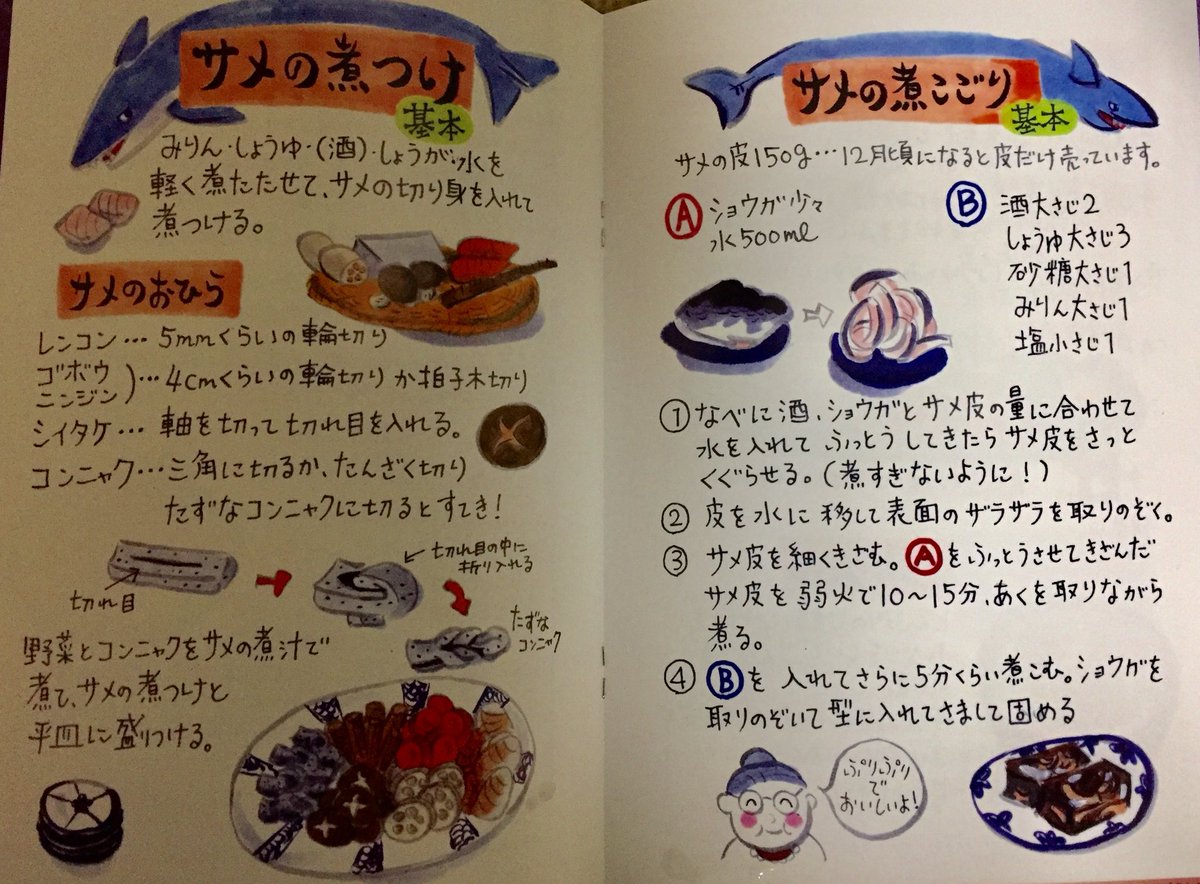 サメの煮つけ
基本
みりん・しょうゆ・(酒)・しょうが、水を
軽く煮たたせて、サメの切り身を入れて
煮つける。
サメのおひら
レンコン… 5mmくらいの輪切り
ゴボウ
ニンジン)…4cmくらいの輪切りか拍子木切り
シイタケ… 軸を切って切れ目を入れる。
コンニャク…三角に切るか、たんざく切り
たずなコンニャクに切るとすてき!
切れ目
切れ目の中に
折り入れる
たずな
コンニャク
野菜とコンニャクをサメの煮汁で
煮て、サメの煮つけと
平皿に盛りつける。
サメの煮こごり
基本
サメの皮150g…12月頃になると皮だけ売っています。
Ⓐ ショウガ少々
水500ml
Ⓑ 酒大さじ2
しょうゆ大さじ3
砂糖大さじ1
みりん大さじ1
塩小さじ1
① なべに酒、ショウガとサメ皮の量に合わせて
水を入れて ふっとうしてきたらサメ皮をさっと
くぐらせる。(煮すぎないように!)
② 皮を水に移して表面のザラザラを取りのぞく。
③ サメ皮を細くきざむ。Ⓐをふっとうさせてきざんだ
サメ皮を弱火で10〜15分、あくを取りながら
煮る。
④ Ⓑを入れてさらに5分くらい煮こむ。ショウガを
取りのぞいて型に入れてさまして固める
ぷりぷり
で
おいしいよ!